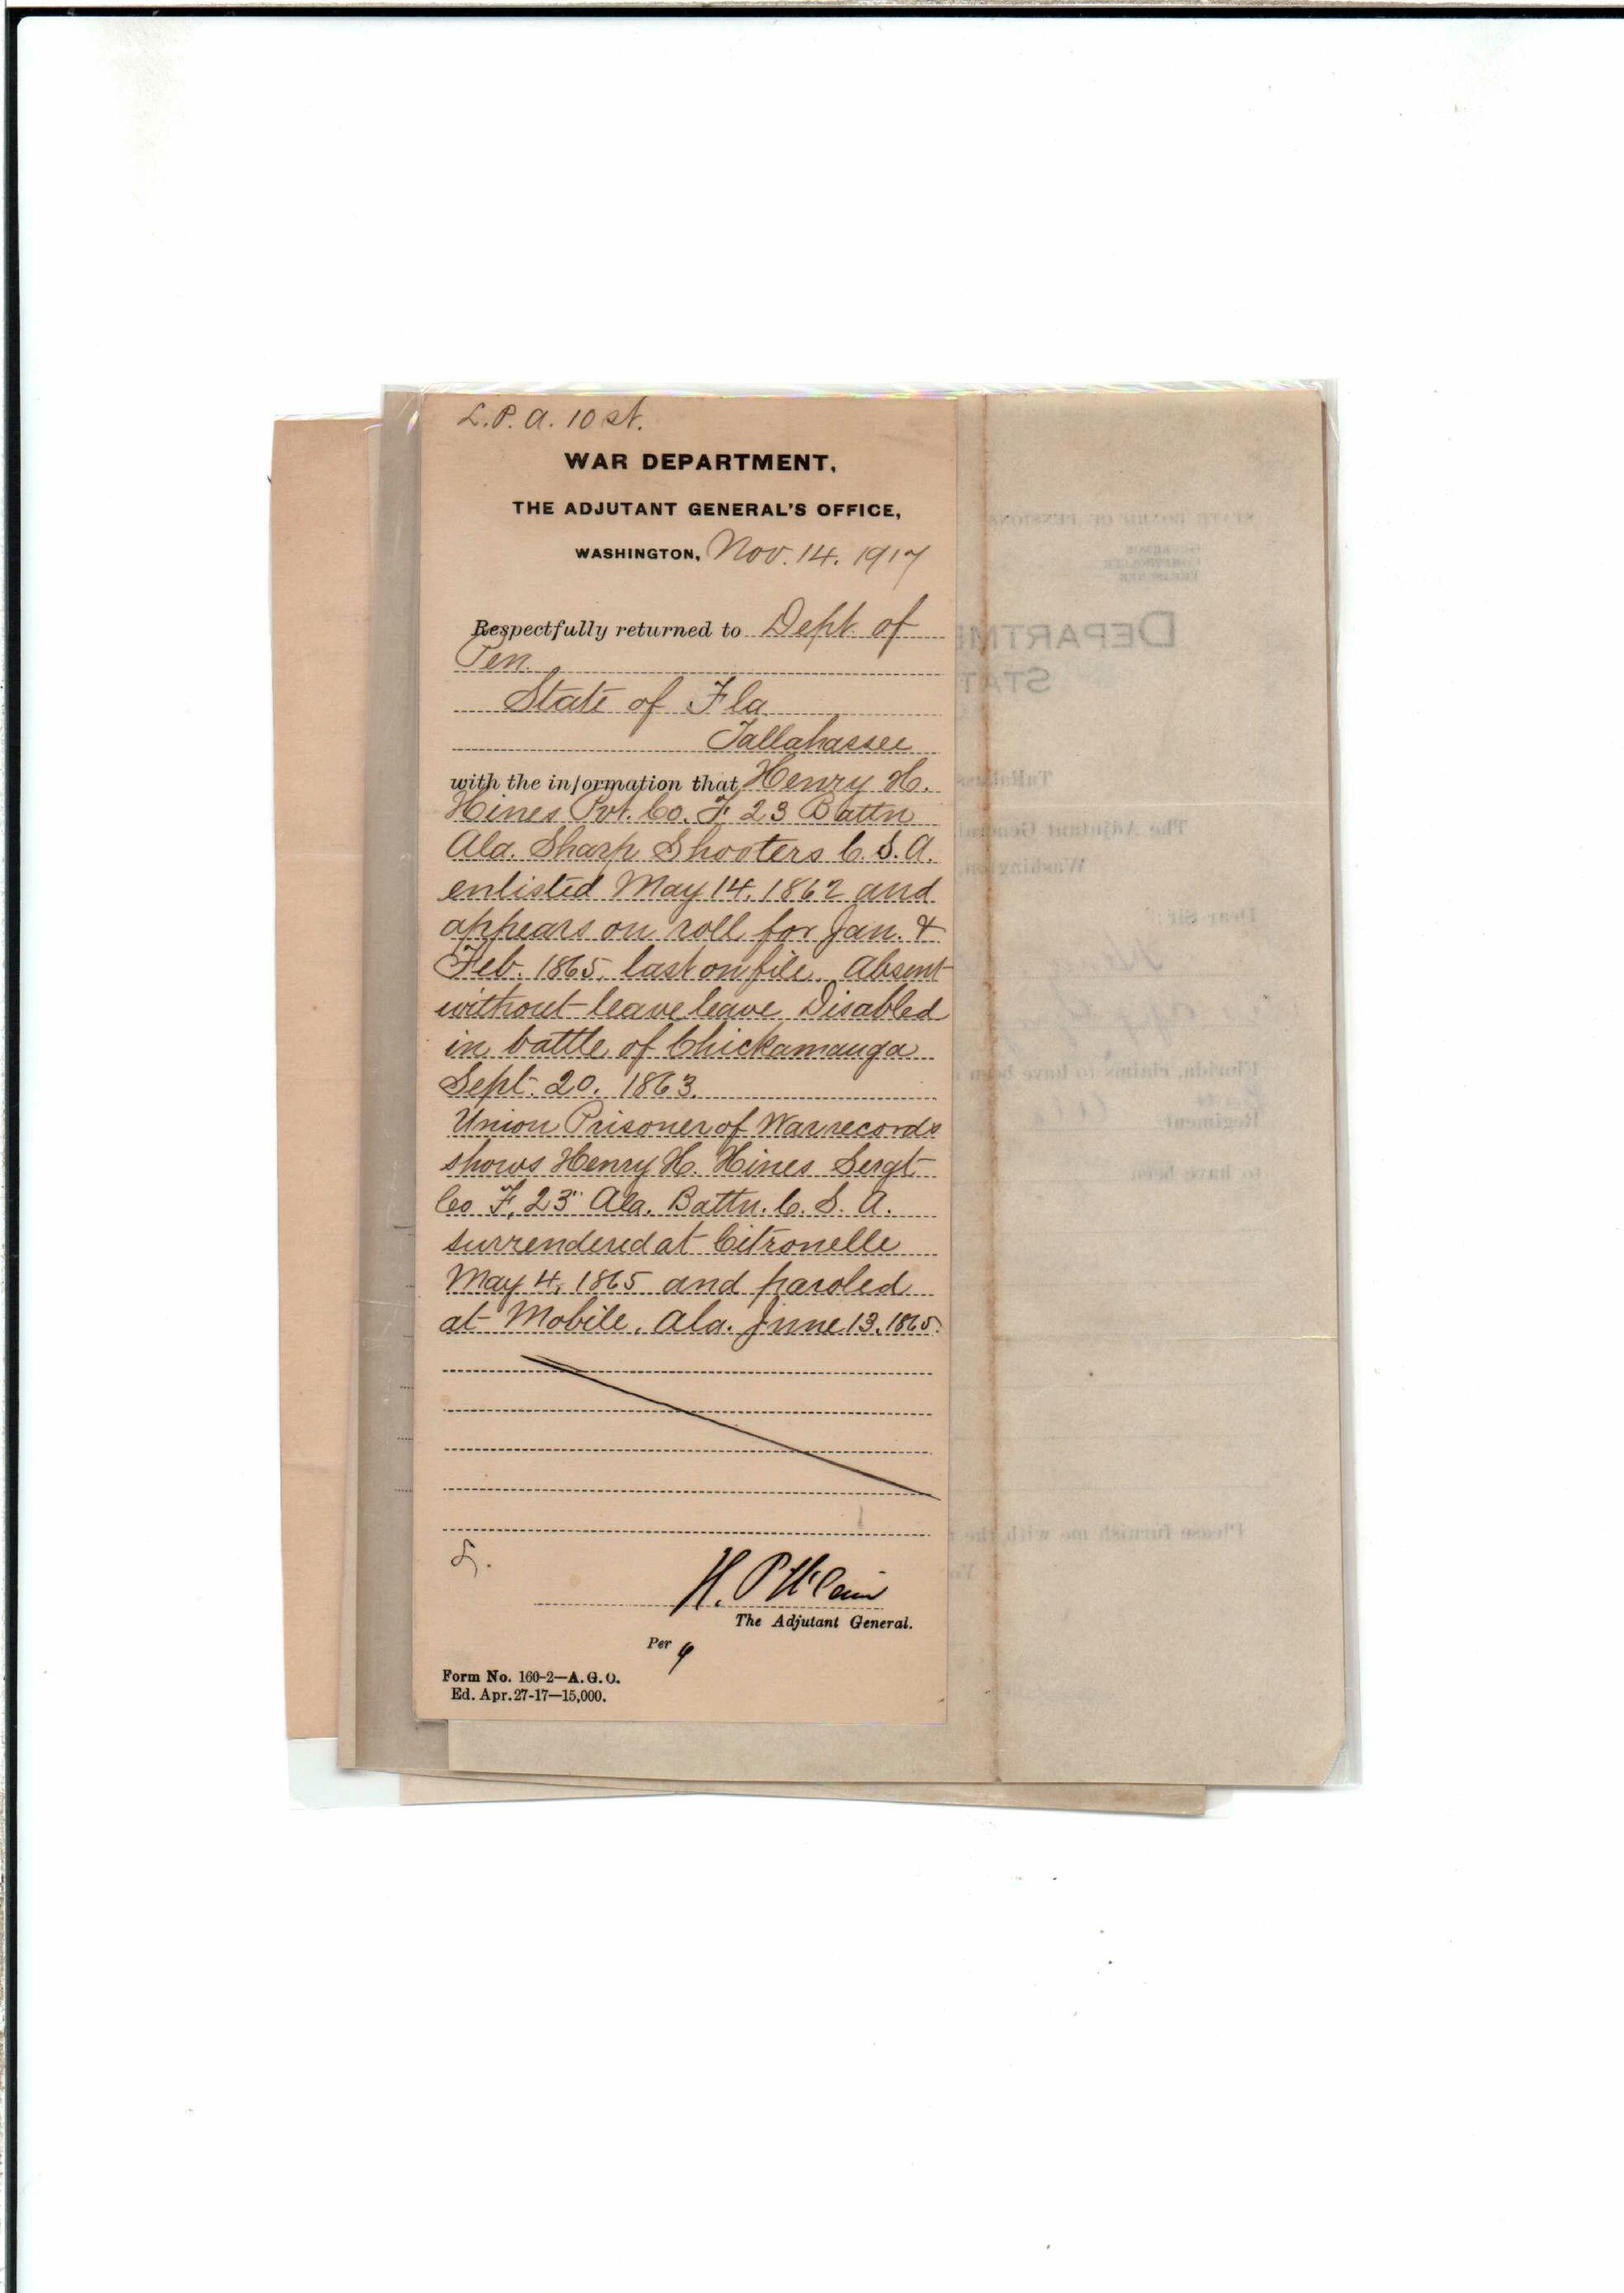 L.P.A. 10 st.
WAR DEPARTMENT,
THE ADJUTANT GENERAL'S OFFICE,
WASHINGTON, Nov. 14. 1917
Respectfully returned to Dept. of
Pen.
State of Fla.
Tallahassee
with the information that Henry H.
Hines Pvt. Co. F 23 Battn
Ala. Sharp Shooters C.S.A.
enlisted May 14, 1862 and
appears on roll for Jan. &
Feb. 1865, last on file. Absent
without leave leave Disabled
in battle of Chickamauga
Sept. 20. 1863.
Union Prisoner of War records
shows Henry H. Hines Sergt
Co F, 23" Ala. Battn. C. S. A.
surrendered at Citronelle
May 4, 1865 and paroled
at Mobile, Ala. June 13, 1865.
H. P. McCain
The Adjutant General.
Per
Form No. 160-2—A.G.O.
Ed. Apr.27-17—15,000.
STATE BOARD OF PENSIONS
GOVERNOR
COMPTROLLER
TREASURER
DEPARTME
STAT
Tallahas
The Adjutant General
Washington,
Dear Sir:
Florida, claims to have been
Regiment
to have been
Please furnish me with the